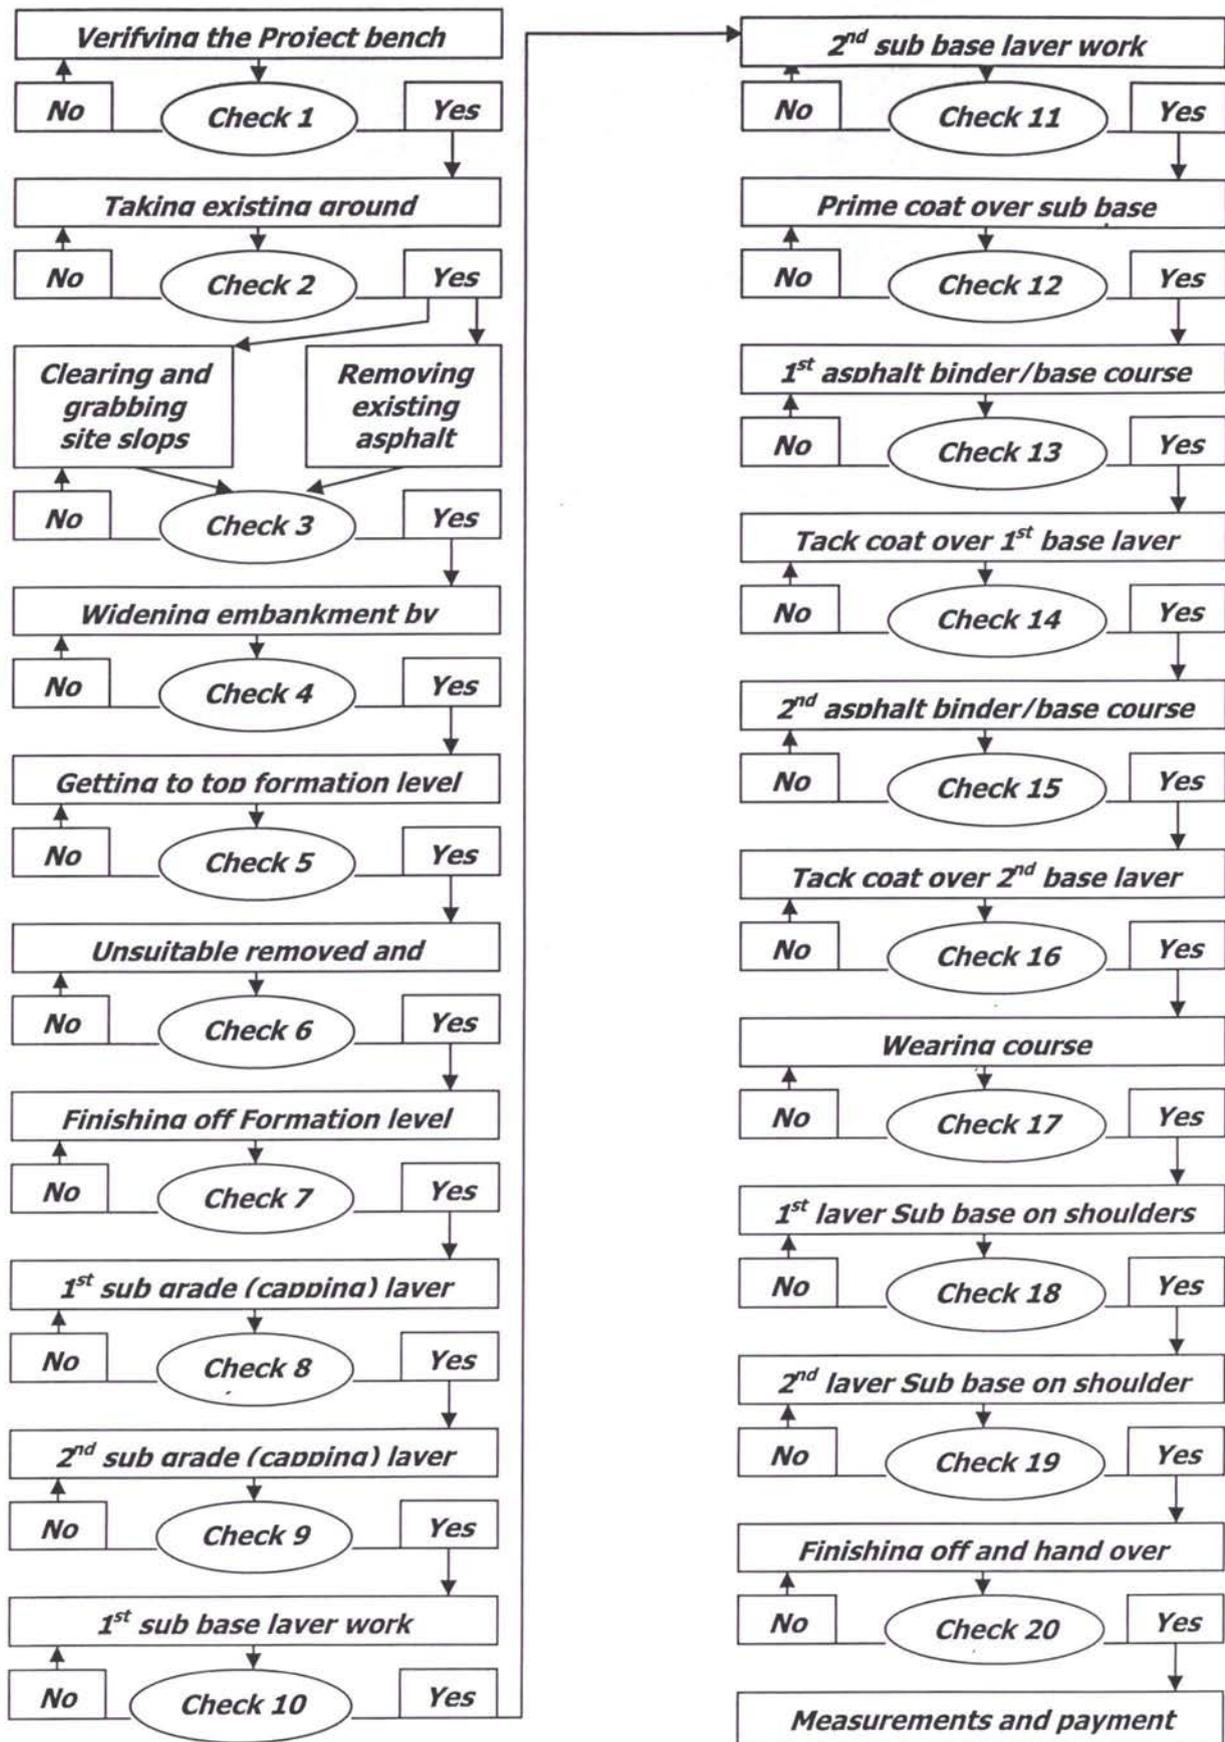 Verifying the Project bench
No
Check 1
Yes
Taking existing ground
No
Check 2
Yes
Clearing and
grabbing
site slops
Removing
existing
asphalt
No
Check 3
Yes
Widening embankment by
No
Check 4
Yes
Getting to top formation level
No
Check 5
Yes
Unsuitable removed and
No
Check 6
Yes
Finishing off Formation level
No
Check 7
Yes
1st sub grade (capping) layer
No
Check 8
Yes
2nd sub grade (capping) layer
No
Check 9
Yes
1st sub base layer work
No
Check 10
Yes
2nd sub base layer work
No
Check 11
Yes
Prime coat over sub base
No
Check 12
Yes
1st asphalt binder/base course
No
Check 13
Yes
Tack coat over 1st base layer
No
Check 14
Yes
2nd asphalt binder/base course
No
Check 15
Yes
Tack coat over 2nd base layer
No
Check 16
Yes
Wearing course
No
Check 17
Yes
1st layer Sub base on shoulders
No
Check 18
Yes
2nd layer Sub base on shoulder
No
Check 19
Yes
Finishing off and hand over
No
Check 20
Yes
Measurements and payment